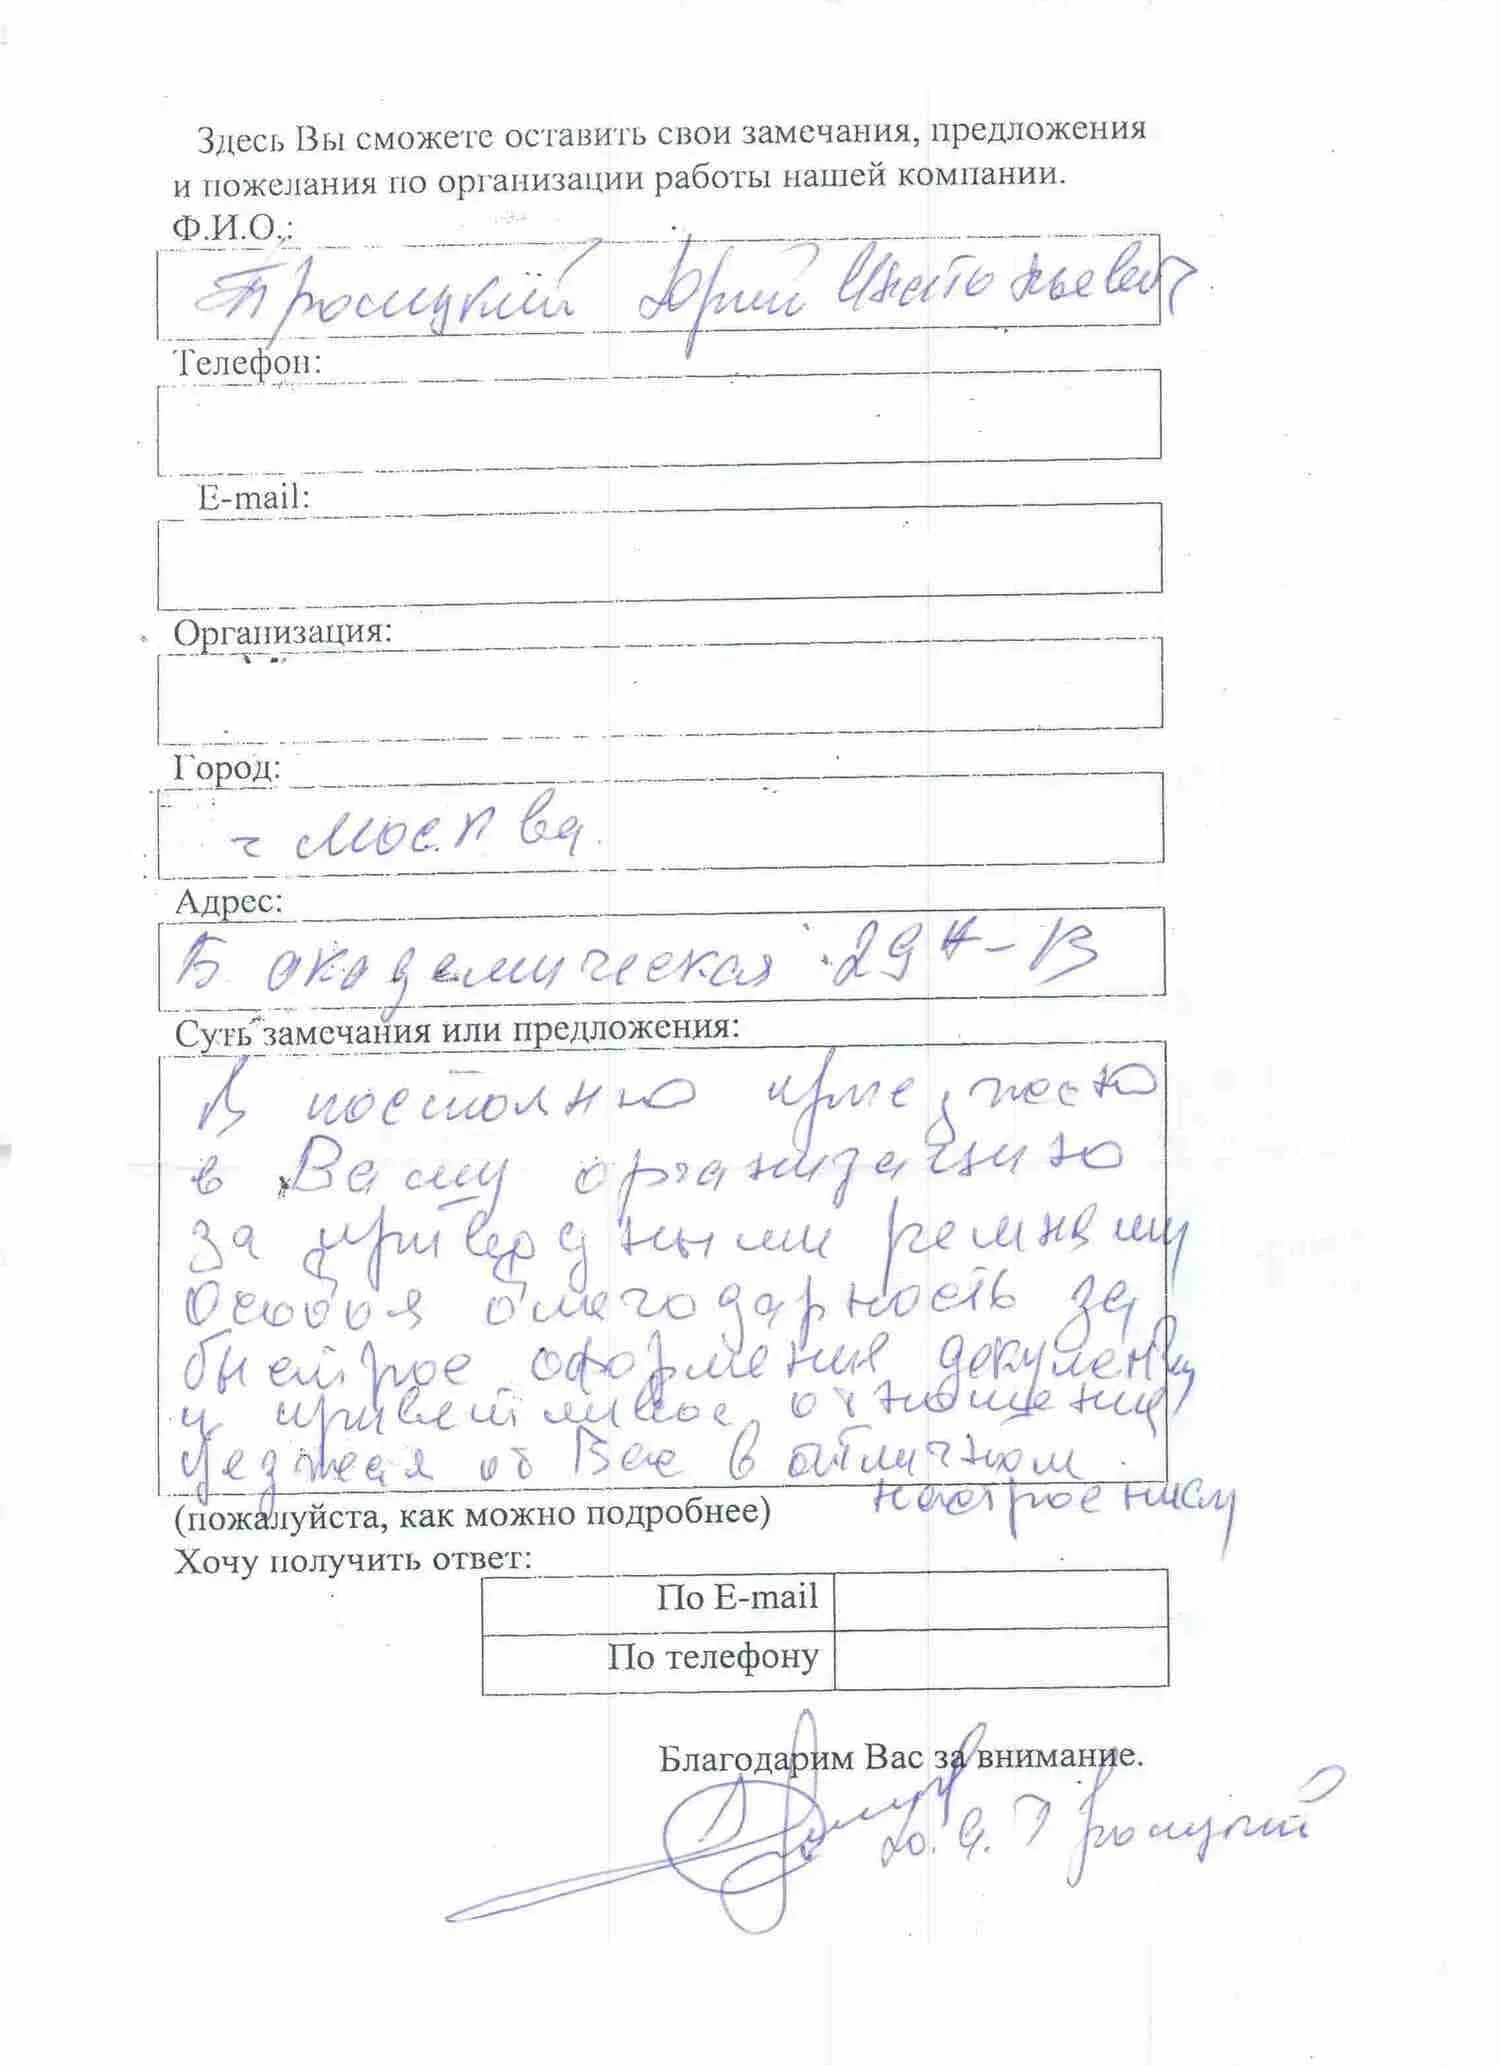 Здесь Вы сможете оставить свои замечания, предложения
и пожелания по организации работы нашей компании.
Ф.И.О.:
Троицкий Юрий Анатольевич
Телефон:
E-mail:
Организация:
Город:
г Москва.
Адрес:
Б академическая 29
Суть замечания или предложения:
в Вашу организацию
за приводными ремнями
Особая благодарность за
быстрое оформление
и приветливое отношение
Уезжая от Вас в отличном
настроении
(пожалуйста, как можно подробнее)
Хочу получить ответ:
По E-mail
По телефону
Благодарим Вас за внимание.
Ю.А. Троицкий